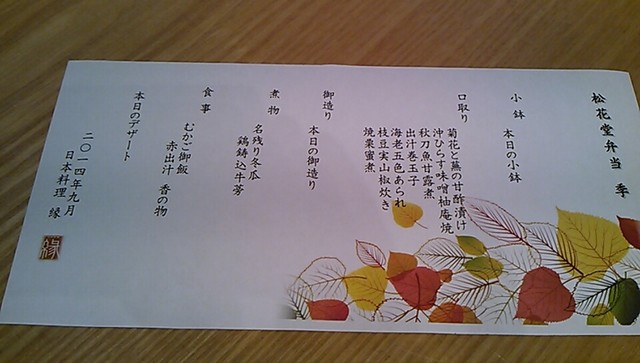 松花堂弁当 季
小鉢 本日の小鉢
口取り
菊花と蕪の甘酢漬け
沖ひらす味噌柚庵焼
秋刀魚甘露煮
出汁巻玉子
海老五色あられ
枝豆実山椒炊き
焼栗蜜煮
御造り 本日の御造り
煮物
名残り冬瓜
鶏鋳込牛蒡
食事
むかご御飯
赤出汁 香の物
本日のデザート
二〇一四年九月
日本料理 縁
縁